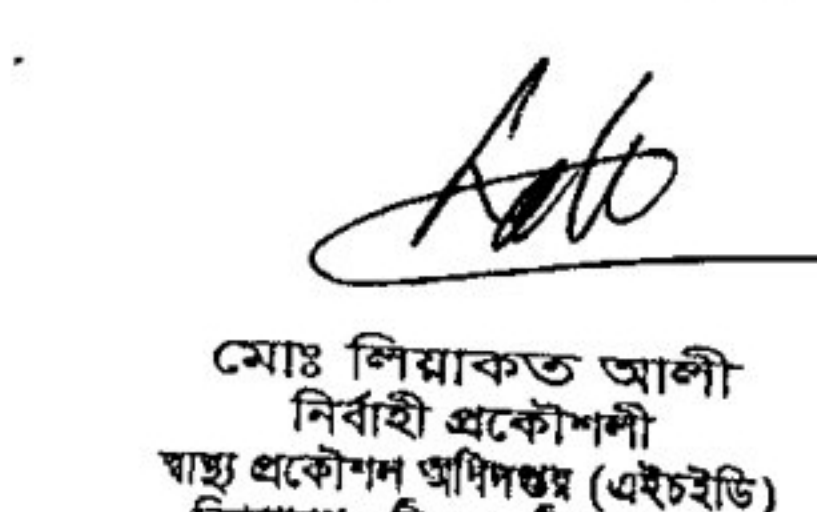 মোঃ লিয়াকত আলী
নির্বাহী প্রকৌশলী
স্বাস্থ্য প্রকৌশল অধিদপ্তর (এইচইডি)